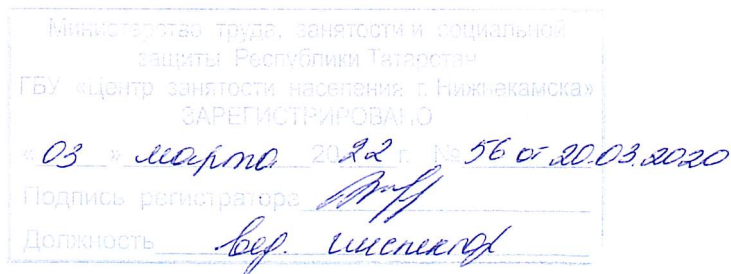 Министерство труда, занятости и социальной
защиты Республики Татарстан
ГБУ «Центр занятости населения г. Нижнекамска»
ЗАРЕГИСТРИРОВАНО
«03» марта 2022 г. № 56 от 20.03.2020
Подпись регистратора
Должность вед. инспектор